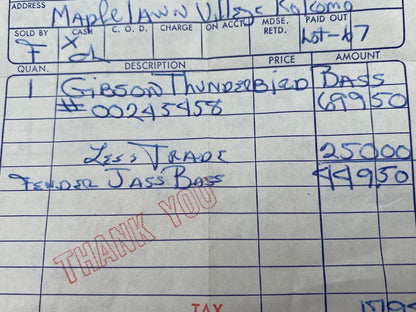 ADDRESS Maple Lawn Village Kokomo
SOLD BY CASH C. O. D. CHARGE ON ACCT. MDSE. RETD. PAID OUT
F X Lot-47
QUAN. DESCRIPTION PRICE AMOUNT
1 Gibson Thunderbird Bass
# 00245458 69950
Less Trade 25000
Fender Jass Bass 44950
THANK YOU
TAX